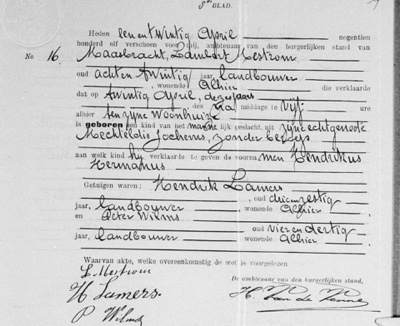 BLAD.
Heden een en twintig April negentien
honderd elf verscheen voor mij, ambtenaar van den burgerlijken stand
No 16. Maasbracht, Lambert Mestrom
oud acht en twintig jaar, landbouwer
, wonende Alhier die verklaarde
dat op twintig April, dezes jaars
des na middags te vijf ure
alhier ten zijne woonhuize
is geboren een kind van het mannelijk geslacht, uit zijne echtgenoote
Mechteldis Jochems, zonder beroep
aan welk kind hij verklaarde te geven de voornamen Hendrikus
Hermanus
Getuigen waren: Hendrik Lamers
, oud drie en zestig
jaar, landbouwer wonende Alhier
en Peter
, oud vier en dertig
jaar, landbouwer wonende Alhier
Waarvan akte, welke overeenkomstig de wet is voorgelezen
L. Mestrom
De ambtenaar van den burgerlijken stand,
H Lamers.
P